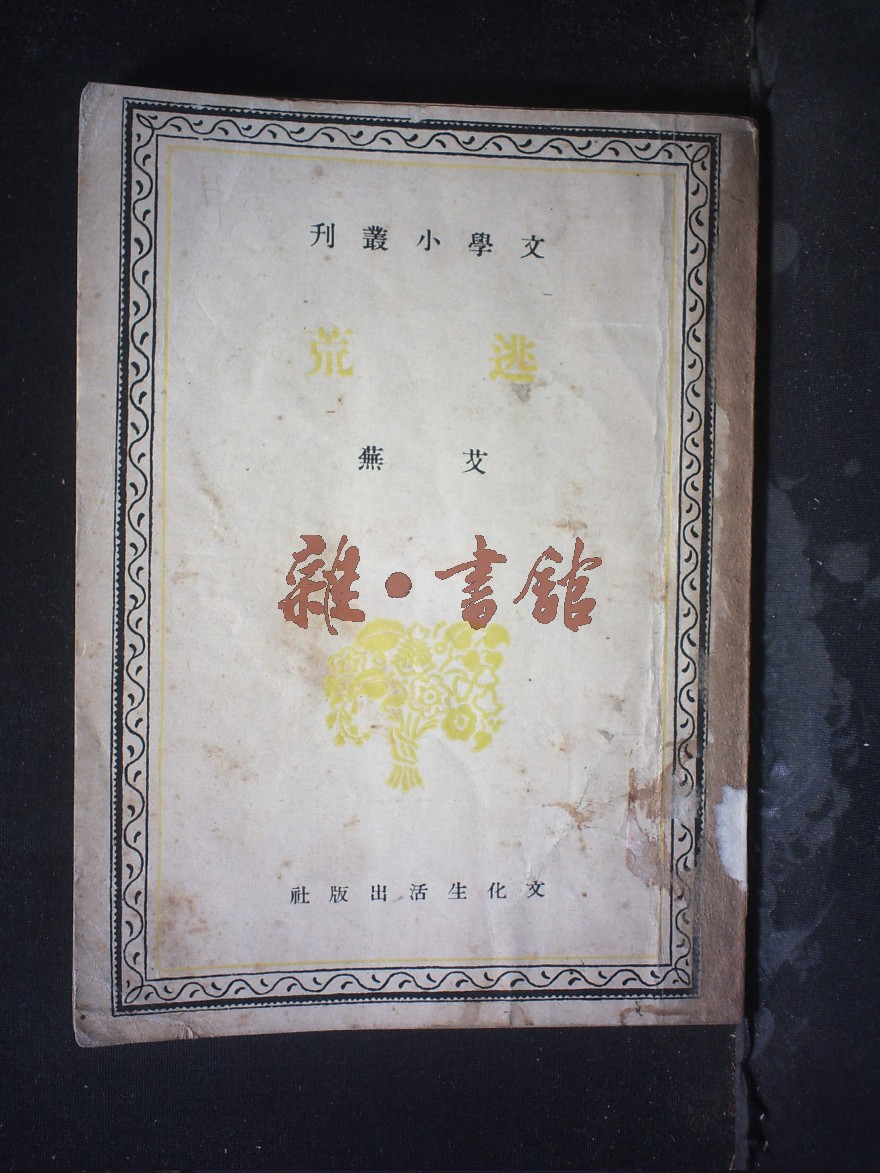 文學小叢刊
逃荒
艾蕪
雜·書館
文化生活出版社